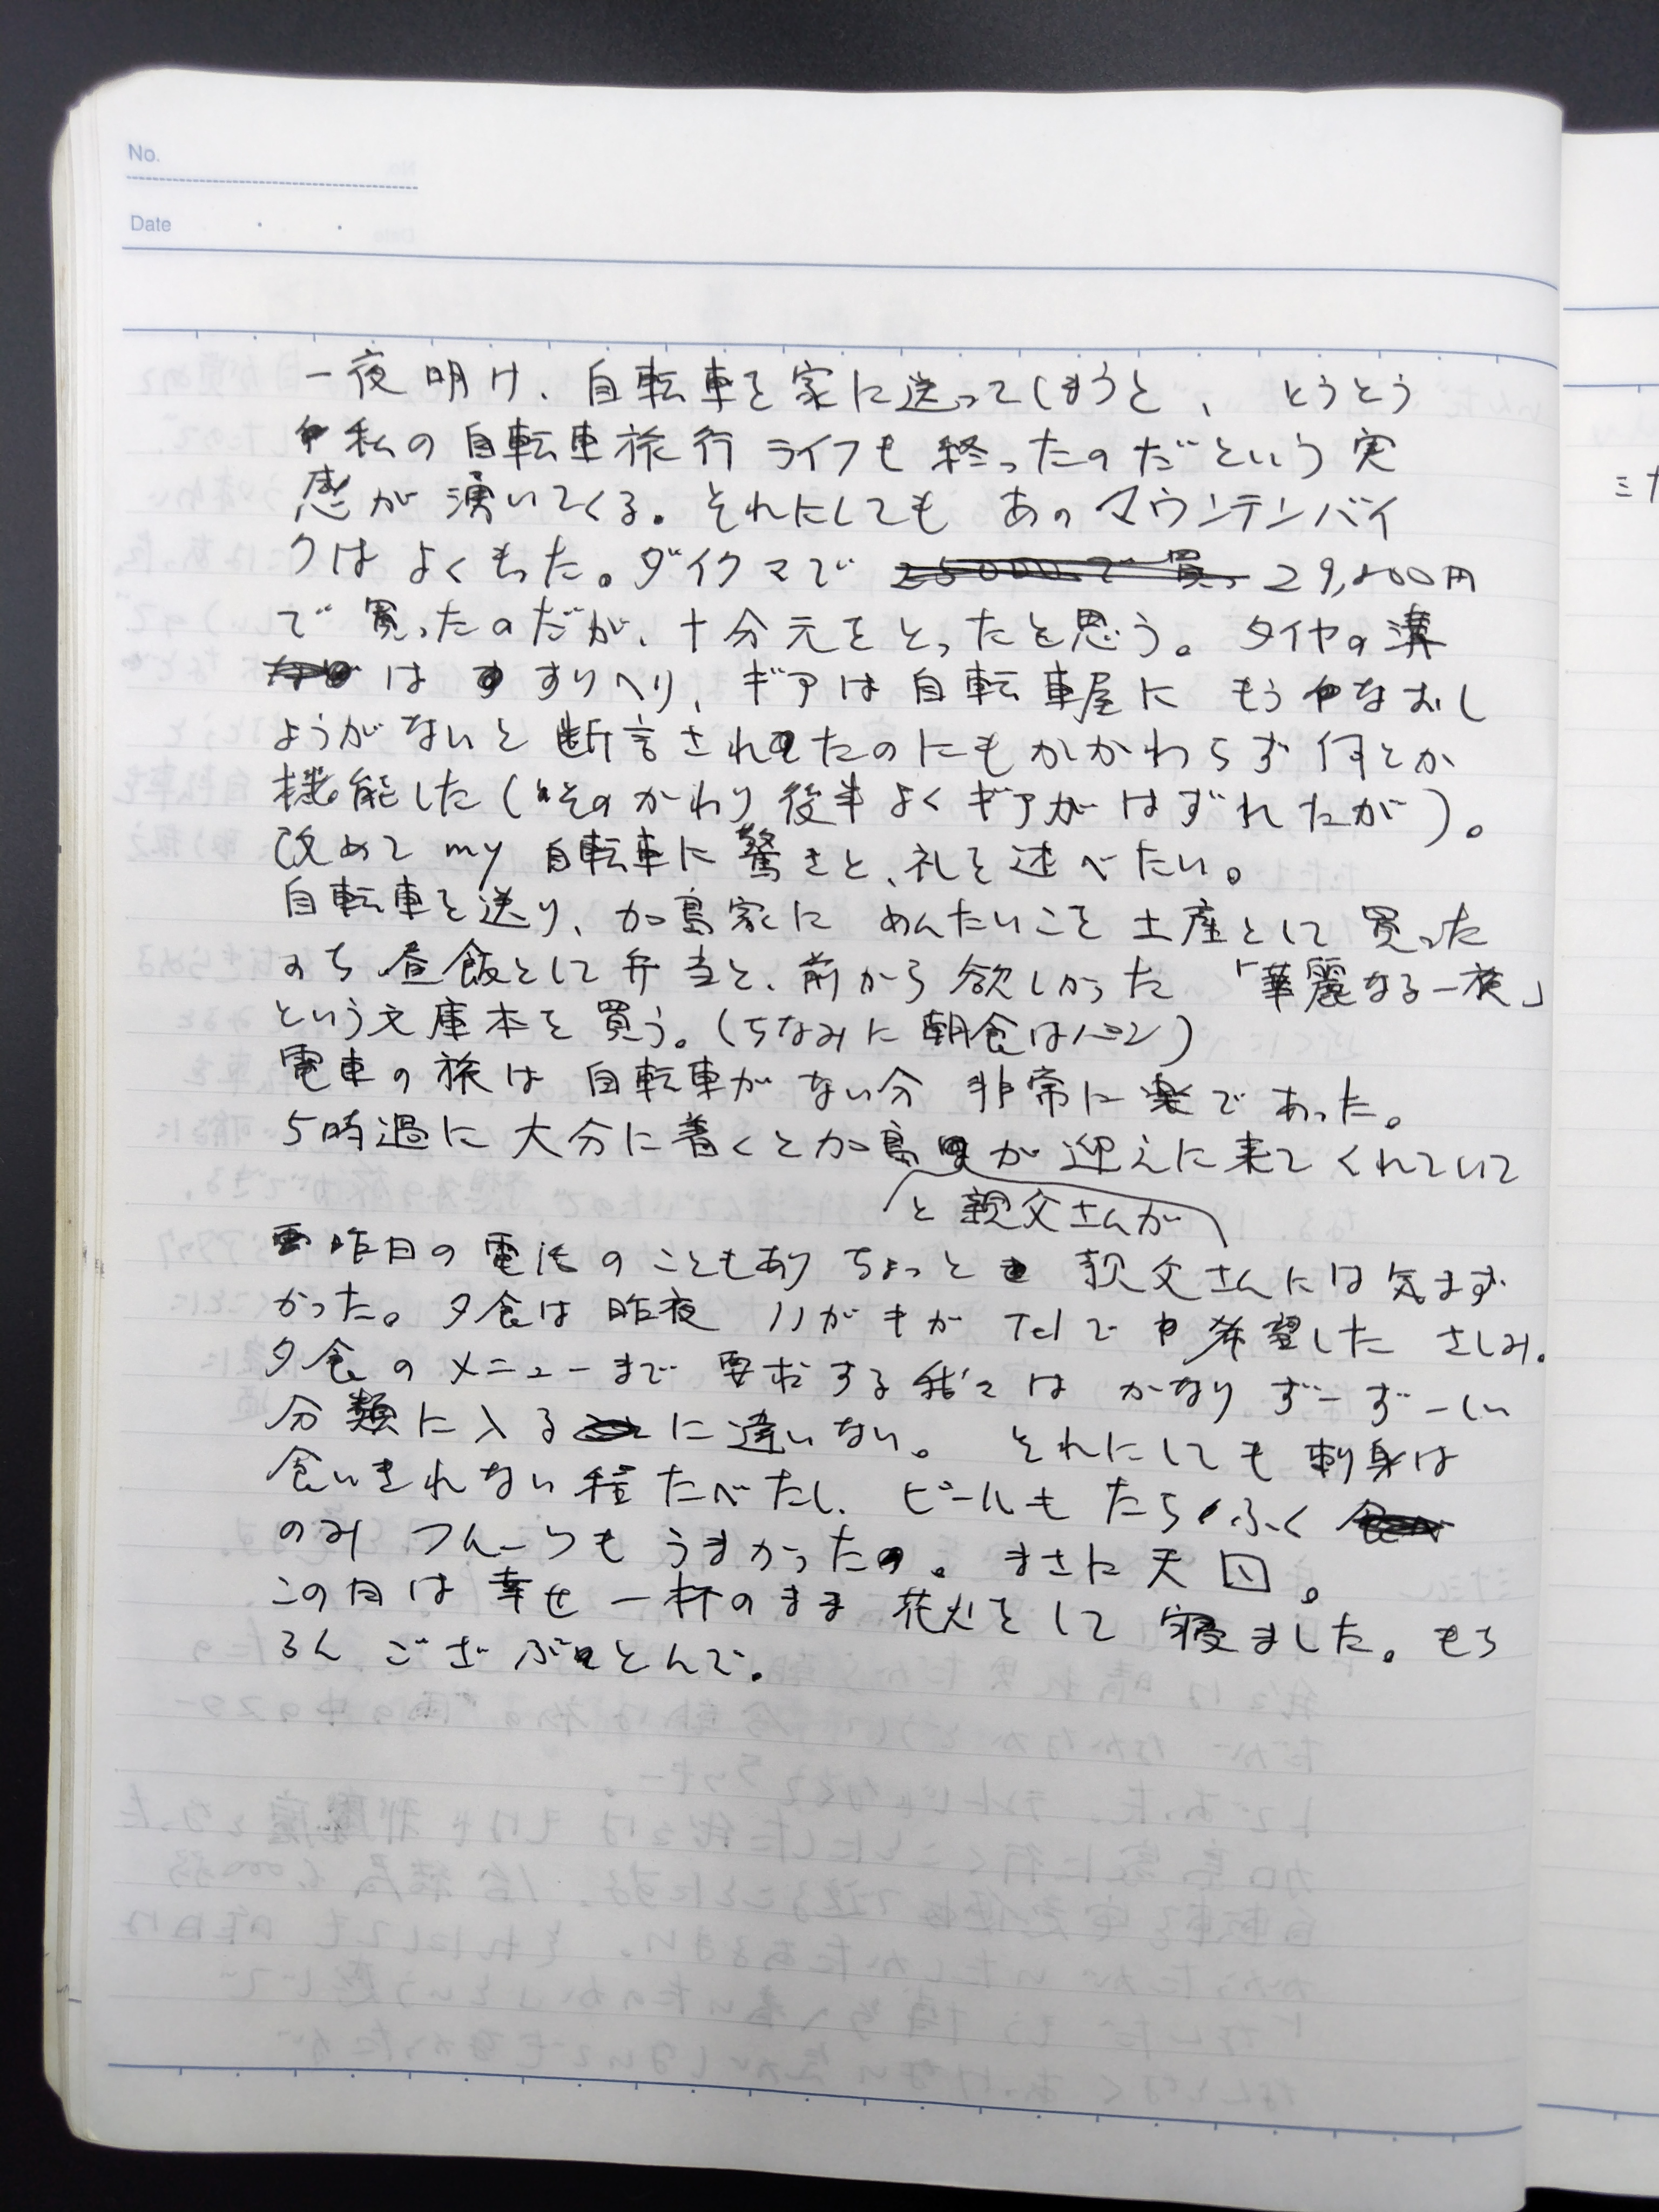 No.
Date
一夜明け、自転車を家に送ってしまうと、とうとう
私の自転車旅行ライフも終ったのだという実
感が湧いてくる。それにしてもあのマウンテンバイ
クはよくもった。ダイクマで 25000で買っ 29,800円
で買ったのだが、十分元をとったと思う。タイヤの溝
はすりへり、ギアは自転車屋にもうなおし
ようがないと断言されたのにもかかわらず何とか
機能した(そのかわり後半よくギアがはずれたが)。
改めてmy自転車に驚きと、礼を述べたい。
自転車を送り、加島家にめんたいこを土産として買った
のち昼飯として弁当と、前から欲しかった「華麗なる一族」
という文庫本を買う。(ちなみに朝食はパン)
電車の旅は自転車がない分非常に楽であった。
5時過に大分に着くと加島が迎えに来てくれていて
と親父さんが
昨日の電話のこともありちょっと親父さんには気まず
かった。夕食は昨夜ハガキがTelで希望したさしみ。
夕食のメニューまで要求する我々はかなりずーずーしい
分類に入るに違いない。それにしても刺身は
食いきれない程たべたし、ビールもたらふく
のみフルーツもうまかった。まさに天国。
この日は幸せ一杯のまま花火をして寝ました。もち
ろんござぶとんで。